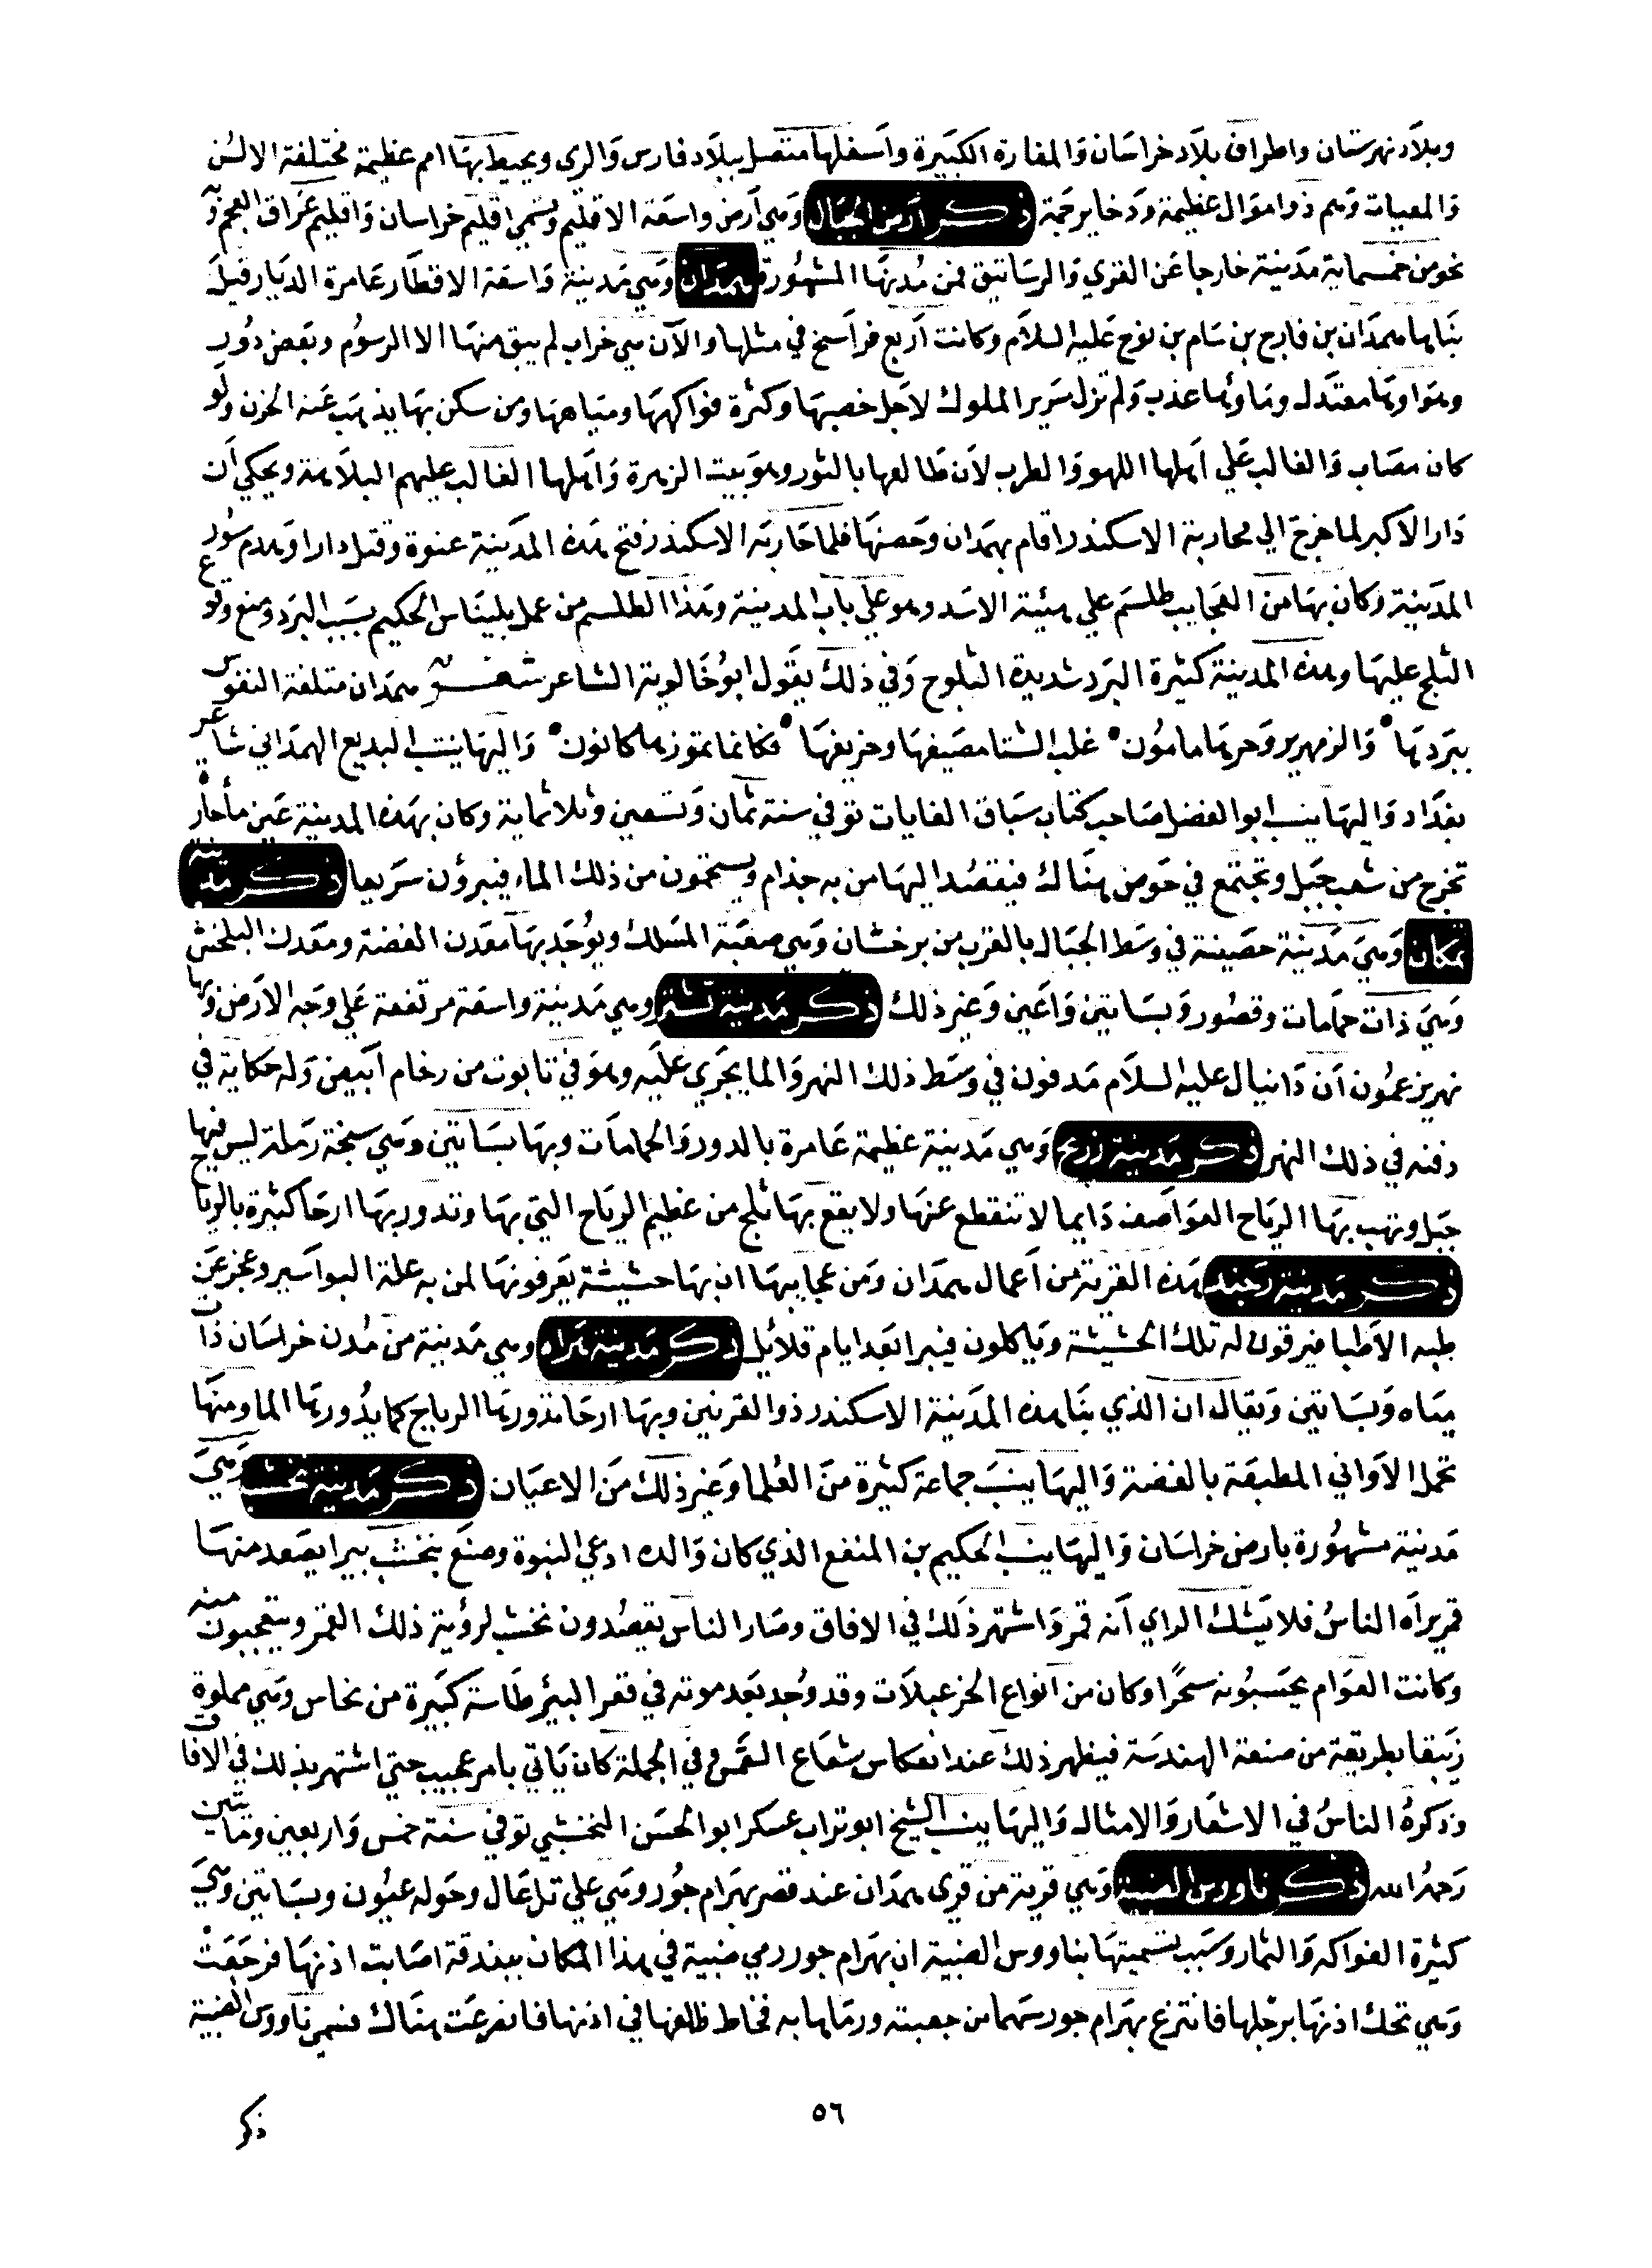 وبلاد نهرستان واطراف بلاد خراسان والمفازة الكبيرة واسفلها متصل ببلاد فارس والري ويحيط بها امم عظيمة مختلفة الالسن
والمعيبات وهم ذوا موال عظيمة وذخاير جمة ذكر ارض الجبال وهي ارض واسعة الاقليم وتسمي اقليم خراسان واقليم عراق العجم
نحو من خمسماية مدينة خارجا عن القري والرساتيق فمن مدنها المشهورة همدان وهي مدينة واسعة الاقطار عامرة الديار قيل
بناها همدان بن فارح بن سام بن نوح عليه السلام وكانت اربع فراسخ في مثلها والآن هي خراب لم يبق منها الا الرسوم وبعض دور
وهواوها معتدل وماوها عذب ولم تزل سرير الملوك لاجل خصبها وكثرة فواكهها ومياهها ومن سكن بها يذهب عنه الحزن ولو
كان مصاب والغالب علي اهلها اللهو والطرب لان طالعها بالثور وهو بيت الزهرة واهلها الغالب عليهم البلاهة ويحكي ان
دارا الاكبر لما خرج الي محاربة الاسكندر اقام بهمدان وحصنها فلما حاربه الاسكندر فتح هذه المدينة عنوة وقتل دارا وهدم سور
المدينة وكان بها من العجايب طلسم علي هيئة الاسد وهو علي باب المدينة وهذا الطلسم من عمل بليناس الحكيم بسبب البرد ومنع وقوع
الثلج عليها وهذه المدينة كثيرة البرد شديدة الثلوج وفي ذلك يقول ابو خالوية الشاعر شعر همدان متلفة النفوس
ببردها والزمهرير وحرها مامون غلب الشتا مصيفها وخريفها فكانما تموزها كانون واليها ينسب البديع الهمداني شاعر
بغداد واليها ينسب ابو الفضل صاحب كتاب سباق الغايات توفي سنة ثمان وتسعين وثلاثماية وكان بهذه المدينة عين ماء حار
تخرج من شعب جبل وتجتمع في حوض هناك فيقصد اليها من به جذام ويستحمون من ذلك الماء فيبرؤن سريعا ذكر مدينة
يمكان وهي مدينة حصينة في وسط الجبال بالقرب من برخشان وهي صعبة المسلك ويوجد بها معدن الفضة ومعدن البلخش
وهي ذات حمامات وقصور وبساتين واعين وغير ذلك ذكر مدينة تستر وهي مدينة واسعة مرتفعة علي وجه الارض وبها
نهر يزعمون ان دانيال عليه السلام مدفون في وسط ذلك النهر والما يجري عليه وهو في تابوت من رخام ابيض وله حكاية في
دفنه في ذلك النهر ذكر مدينة زرنج وهي مدينة عظيمة عامرة بالدور والحمامات وبها بساتين وهي سبخة رملة ليس فيها
جبل وتهب بها الرياح العواصف دايما لا تنقطع عنها ولا يقع بها ثلج من عظيم الرياح التي بها وتدور بها ارحا كثيرة بالرياح
ذكر مدينة هذه القرية من اعمال همدان ومن عجايبها ان بها حشيشة يعرفونها لمن به علة البواسير وعجز عن
طبه الاطبا فيرقون له تلك الحشيشة وياكلون فيبرا بعد ايام قلائل ذكر مدينة هراه وهي مدينة من مدن خراسان ذات
مياه وبساتين ويقال ان الذي بنا هذه المدينة الاسكندر ذو القرنين وبها ارحا تدورها الرياح كما يدورها الما ومنها
تحمل الاواني المطبقة بالفضة واليها ينسب جماعة كثيرة من العلما وغير ذلك من الاعيان ذكر مدينة نخشب وهي
مدينة مشهورة بارض خراسان واليها ينسب الحكيم بن المنقع الذي كان والده ادعي النبوة وصنع بنخشب بيرا يصعد منها
قمر يراه الناس فلا يشك الراي انه قمر واشتهر ذلك في الافاق وصار الناس يقصدون نخشب لرؤية ذلك القمر ويتعجبون منه
وكانت العوام يحتسبونه سحرا وكان من انواع الخزعبلات وقد وجد بعد موته في قعر البئر طاسة كبيرة من نحاس وهي مملوة
زيبقا بطريقة من صنعة الهندسة فيظهر ذلك عند انعكاس شعاع الشمس وفي الجملة كان ياتي بامر عجيب حتي اشتهر بذلك في الافاق
وذكره الناس في الاشعار والامثال واليها ينسب الشيخ ابو تراب عسكر ابو الحسن النخشبي توفي سنة خمس واربعين ومايتين
رحمه الله ذكر ناووس الظبية وهي قرية من قري همدان عند قصر بهرام جور وهي علي تل عال وحوله عيون وبساتين وهي
كثيرة الفواكه والثمار وسبب تسميتها بناووس الظبية ان بهرام جور رمي ظبية في هذا المكان ببندقة اصابت اذنها فرجعت
وهي تحك اذنها برجلها فانتزع بهرام جور سهما من جعبته ورماها به فخاط ظلفها في اذنها فانفرعت هناك فسمي ناووس الظبية
٥٦
ذكر